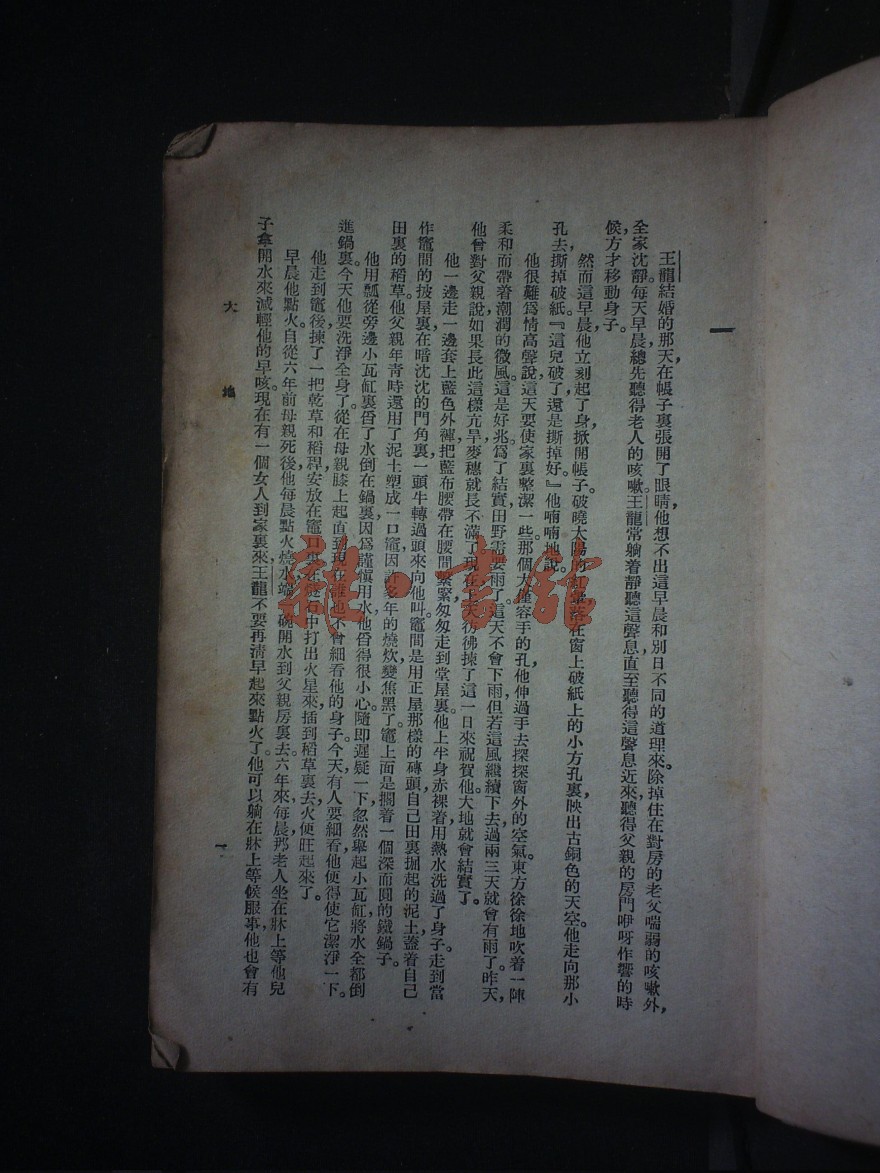 一
王龍結婚的那天，在帳子裏張開了眼睛，他想不出這早晨和別日不同的道理來。除掉住在對房的老父喘弱的咳嗽外，
全家沈靜。每天早晨，總先聽得老人的咳嗽。王龍常躺着靜聽這聲息，直至聽得這聲息近來，聽得父親的房門咿呀作響的時
候，方才移動身子。
然而這早晨，他立刻起了身，掀開帳子。破曉太陽的紅暈落在窗上破紙上的小方孔裏，映出古銅色的天空。他走向那小
孔去，撕掉破紙。『這兒破了，還是撕掉好。』他喃喃地說。
他很難爲情高聲說，這天要使家裏整潔一些。那個大僅容手的孔，他伸過手去探探窗外的空氣。東方徐徐地吹着一陣
柔和而帶着潮潤的微風。這是好兆。爲了結實，田野需要雨了。這天不會下雨，但若這風繼續下去，過兩三天就會有雨了。昨天，
他曾對父親說，如果長此這樣亢旱，麥穗就長不滿了。現在上天彷彿揀了這一日來祝賀他，大地就會結實了。
他一邊走一邊套上藍色外褲，把藍布腰帶在腰間緊緊，匆匆走到堂屋裏。他上半身赤裸着，用熱水洗過了身子，走到當
作竈間的披屋裏，在暗沈沈的門角裏，一頭牛轉過頭來向他叫。竈間是用正屋那樣的磚頭，自己田裏掘起的泥土，蓋着自己
田裏的稻草。他父親年青時還用了泥土塑成一口竈，因許多年的燒炊變焦黑了。竈上面是擱着一個深而圓的鐵鍋子。
他用瓢從旁邊小瓦缸裏舀了水，倒在鍋裏，因爲謹愼用水，他舀得很小心。隨即遲疑一下，忽然舉起小瓦缸，將水全都倒
進鍋裏。今天他要洗淨全身了。從在母親膝上起直到現在，誰也不曾細看他的身子。今天，有人要細看他，便得使它潔淨一下。
他走到竈後，揀了一把乾草和稻稈安放在竈口裏，在燧石中打出火星來，插到稻草裏去，火便旺起來了。
早晨他點火。自從六年前母親死後，他每晨點火燒水，端一碗開水到父親房裏去。六年來，每晨，那老人坐在牀上等他兒
子拿開水來減輕他的早咳。現在有一個女人到家裏來，王龍不要再淸早起來點火了。他可以躺在牀上等候服事，他也會有
大 地
一
雜·書館